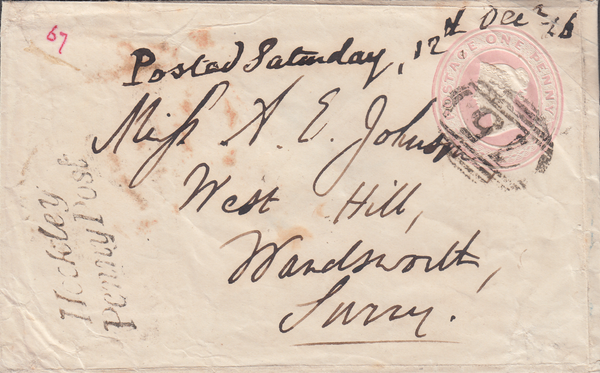 67
Posted Saturday, 12th Dec
POSTAGE ONE PENNY
Miss A. E. Johnson
West Hill,
Wandsworth,
Surry.
Hockley
Penny Post